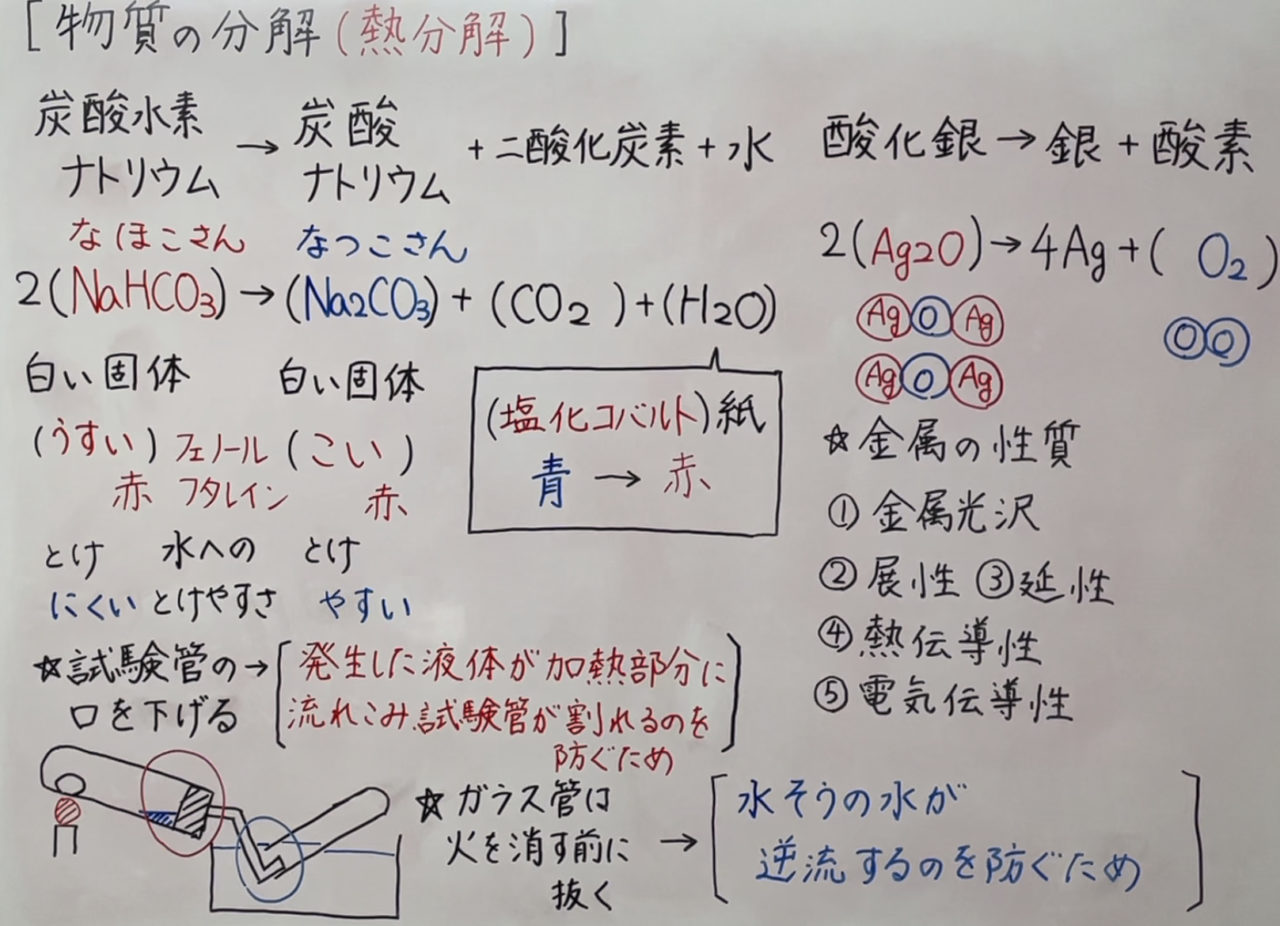 [物質の分解(熱分解)]
炭酸水素
ナトリウム
→
炭酸
ナトリウム
+二酸化炭素+水
なほこさん
なつこさん
2(NaHCO3)→(Na2CO3)+(CO2)+(H2O)
白い固体
白い固体
(うすい)フェノール(こい)
赤 フタレイン 赤
とけ 水への とけ
にくい とけやすさ やすい
(塩化コバルト)紙
青→赤
☆試験管の→
口を下げる
[発生した液体が加熱部分に
流れこみ試験管が割れるのを
防ぐため]
☆ガラス管は
火を消す前に→
抜く
[水そうの水が
逆流するのを防ぐため]
酸化銀→銀+酸素
2(Ag2O)→4Ag+(O2)
Ag O Ag
O O
Ag O Ag
☆金属の性質
①金属光沢
②展性 ③延性
④熱伝導性
⑤電気伝導性